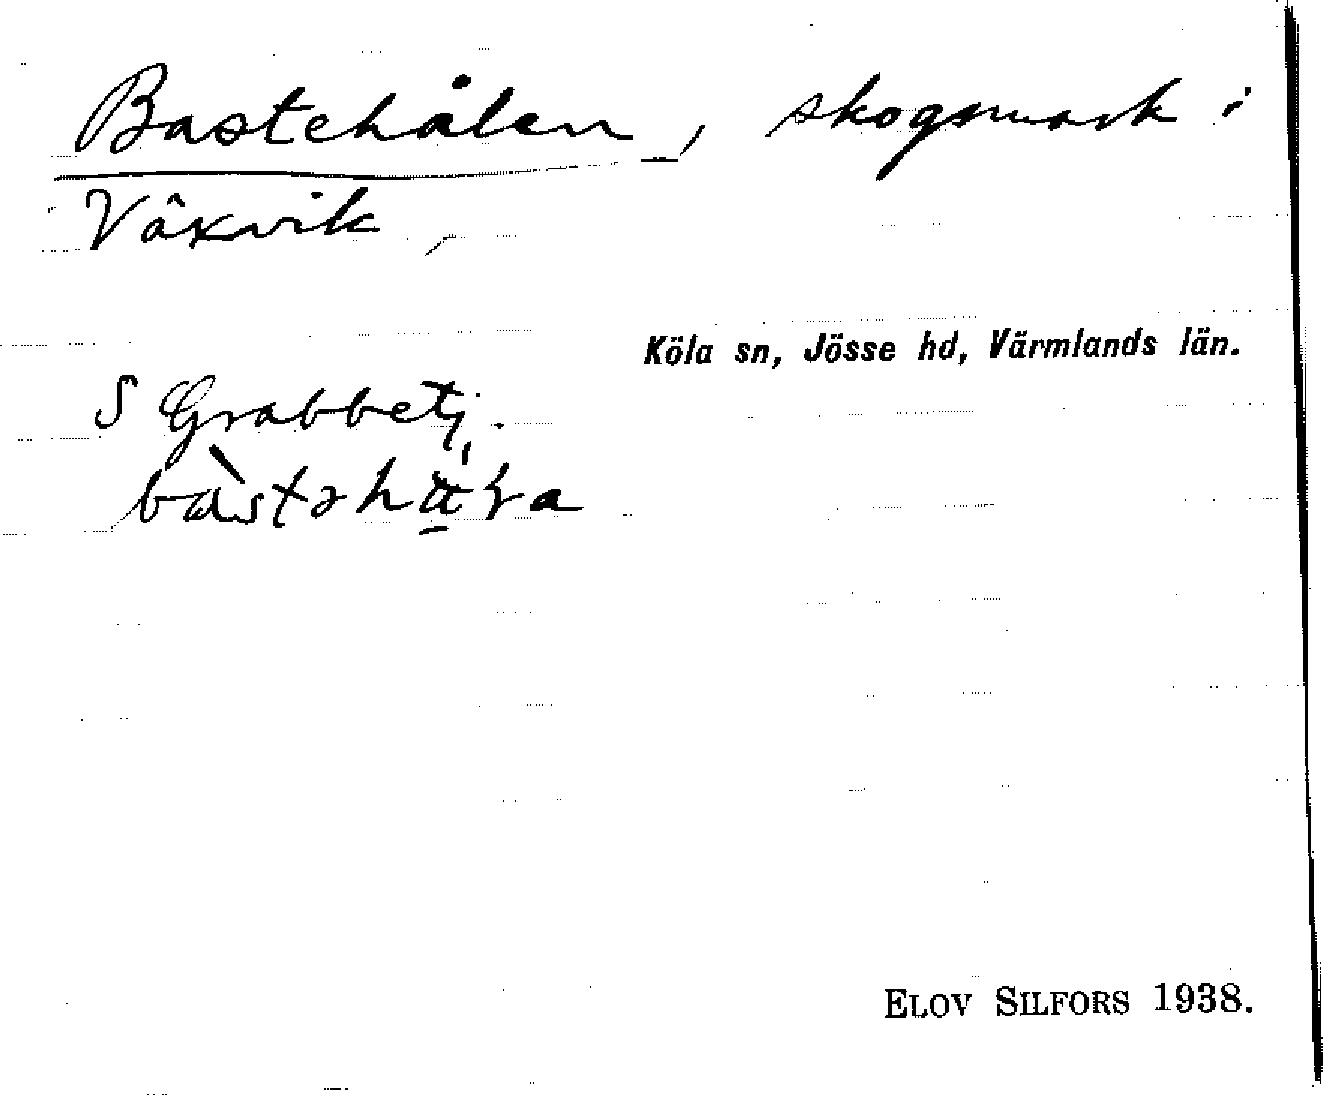 Bastehålen, skogsmark i
Växvik,
Köla sn, Jösse hd, Värmlands län.
S Grabbetj.
ELOV SILFORS 1938.